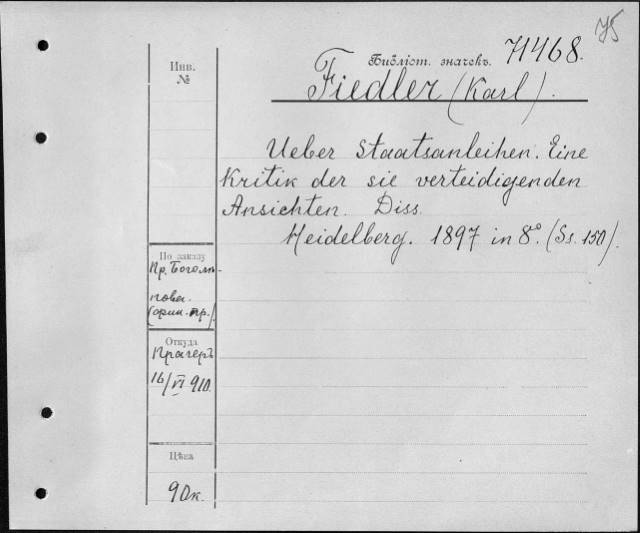 75
Инв.
№
Библіот. значекъ. 71468.
Fiedler (Karl).
Ueber Staatsanleihen. Eine
Kritik der sie verteidigenden
Ansichten. Diss.
Heidelberg. 1897 in 8°. (Ss. 150).
По заказу
Пр. Боголѣ-
пова.
(фин. пр.)
Откуда
Прагеръ
16/VI 910.
Цѣна
90к.